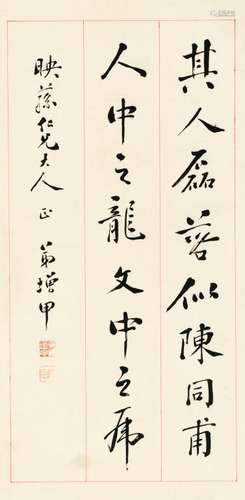 其人磊落似陳同甫
人中之龍文中之虎
映蓀仁兄大人正 弟增甲